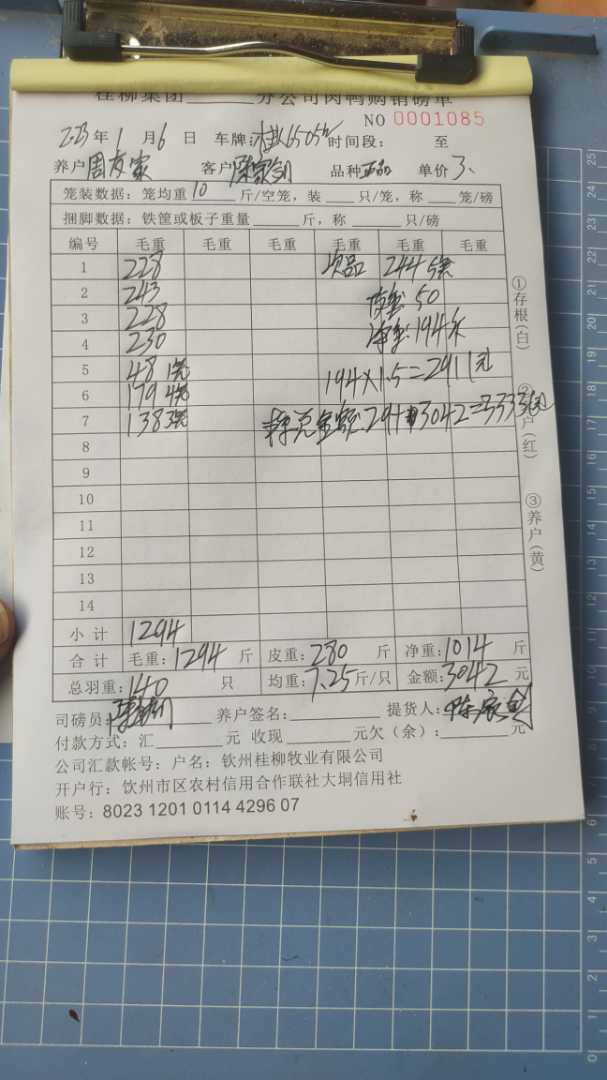 桂柳集团______分公司肉鸭购销磅单
NO 0001085
2023年1月6日 车牌: 6505 时间段: 至
养户 周友家 客户 品种 正品 单价 3、
笼装数据: 笼均重 10 斤/空笼, 装 只/笼, 称 笼/磅
捆脚数据: 铁筐或板子重量 斤, 称 只/磅
编号 毛重 毛重 毛重 毛重 毛重 毛重
1 228 次品 244 5笼
2 243 皮重: 50
3 228 净重: 194斤
4 230
5 48 1笼 194×1.5=291元
6 179 4笼
7 138 3笼 总金额: 291+3042=3333元
8
9
10
11
12
13
14
小计 1294
合计 毛重: 1294 斤 皮重: 280 斤 净重: 1014 斤
总羽重: 140 只 均重: 7.25 斤/只 金额: 3042 元
司磅员: 养户签名: 提货人:
付款方式: 汇 元 收现 元欠(余): 元
公司汇款帐号: 户名: 钦州桂柳牧业有限公司
开户行: 钦州市区农村信用合作联社大垌信用社
账号: 8023 1201 0114 4296 07
①存根(白)
②客户(红)
③养户(黄)
25
6
5
4
3
2
1
0